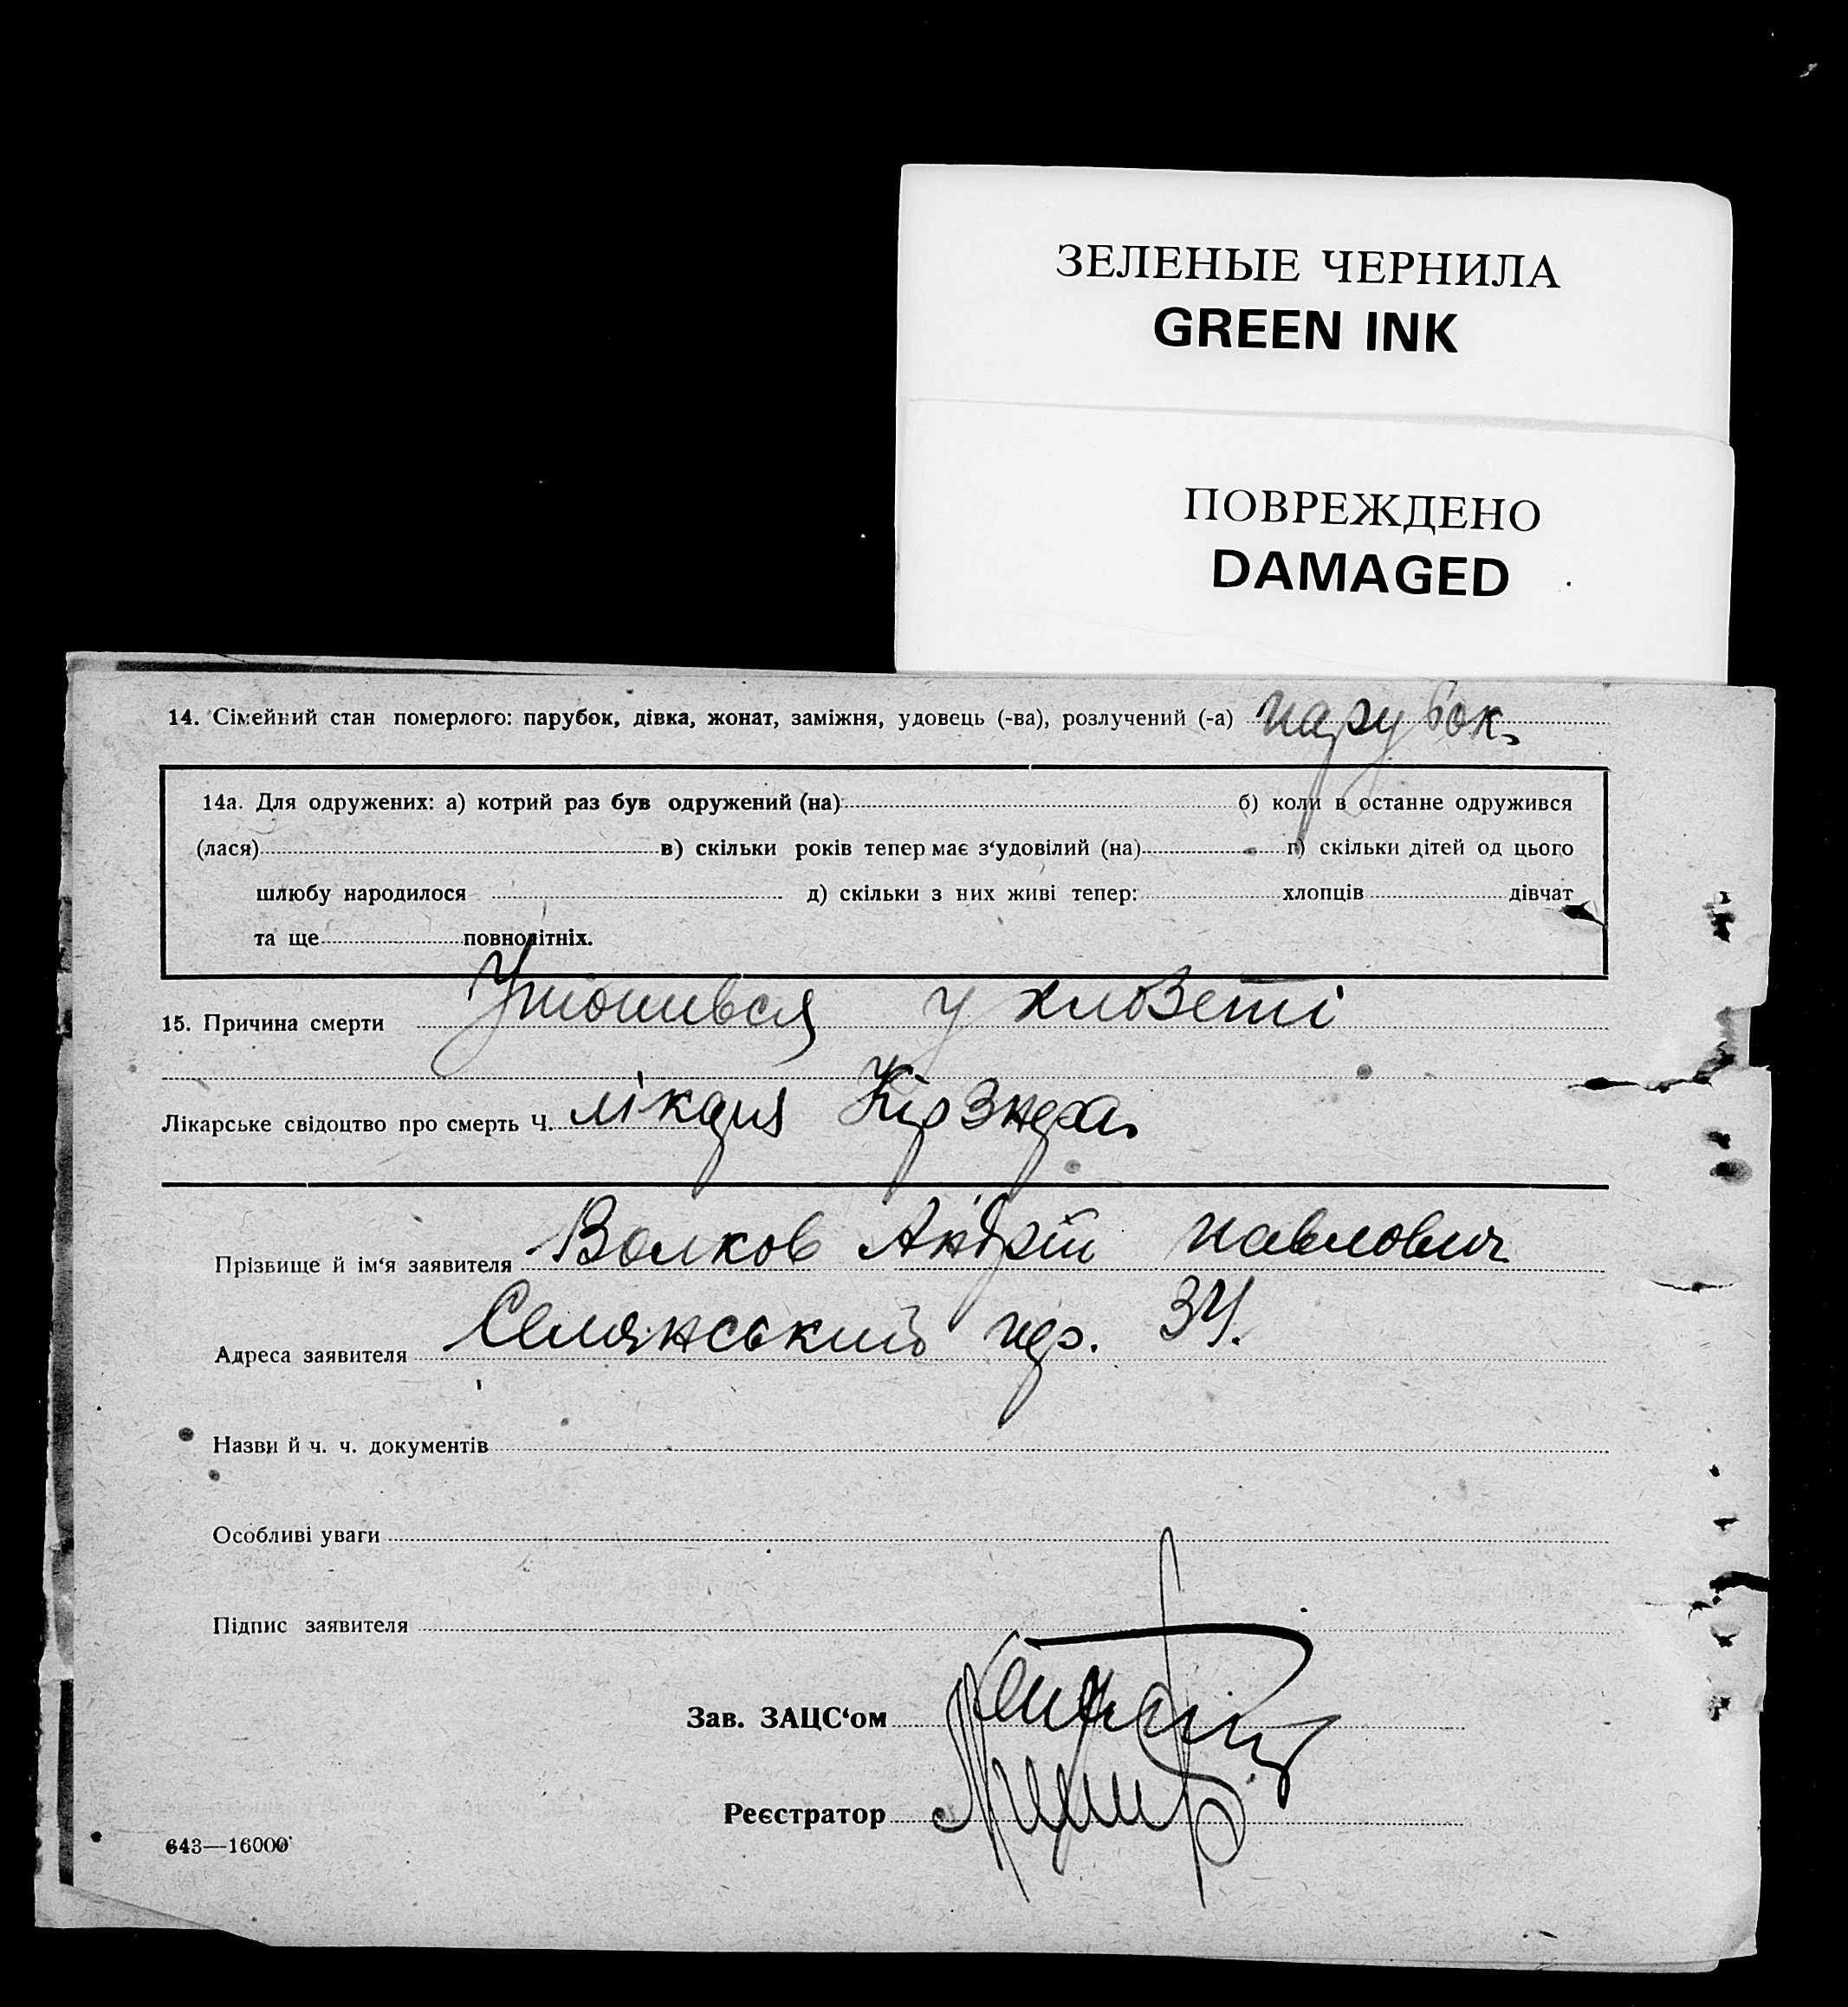 ЗЕЛЕНЫЕ ЧЕРНИЛА
GREEN INK
ПОВРЕЖДЕНО
DAMAGED
14. Сімейний стан померлого: парубок, дівка, жонат, заміжня, удовець (-ва), розлучений (-а) парубок
14а. Для одружених: а) котрий раз був одружений (на) б) коли в останнє одружився
(лася) в) скільки років тепер має з‘удовілий (на) г) скільки дітей од цього
шлюбу народилося д) скільки з них живі тепер: хлопців дівчат
та ще повнолітніх.
15. Причина смерти Утопився у клозеті
Лікарське свідоцтво про смерть Ч. лікаря
Прізвище й ім‘я заявителя Волков Андрій Павлович
Адреса заявителя Селянський пер. 34.
Назви й ч. ч. документів
Особливі уваги
Підпис заявителя
Зав. ЗАЦС‘ом
Реєстратор
643—16000